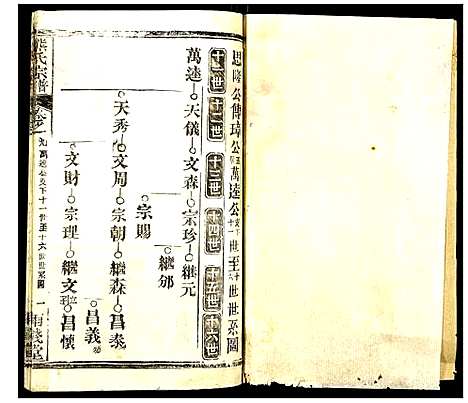 思隆公傳璋公五房萬達公支下十一世至十六世世系圖
十一世 十二世 十三世 十四世 十五世 十六世
萬達 天儀 文森 宗珍 繼元
繼邠
宗賜
天秀 文周 宗朝 繼森 昌泰
昌義
文財 宗理 繼文 昌懷
氏宗譜
九萬達公支下十一世至十六世世系圖 一